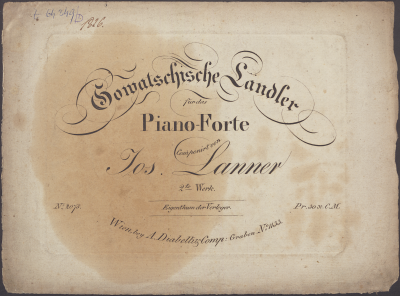 1826.
Gowatschische Landler
für das
Piano-Forte
Componirt von
Jos. Lanner
2tes Werk.
Eigenthum der Verleger.
Wien, bey A. Diabelli & Comp: Graben No. 1133.